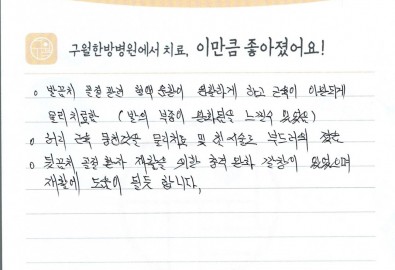 구월한방병원에서 치료, 이만큼 좋아졌어요!
발꿈치 골절 관련 혈액 순환이 원활하게 하고 근육이 이완되게
물리치료함 (발의 부종이 완화됨을 느낄수 있었음)
허리 근육 뭉친것을 물리치료 및 침 시술로 부드러워 졌음
뒷꿈치 골절 환자 재활을 위한 충격 완화 깔창이 있었으며
재활에 도움이 될듯 합니다.